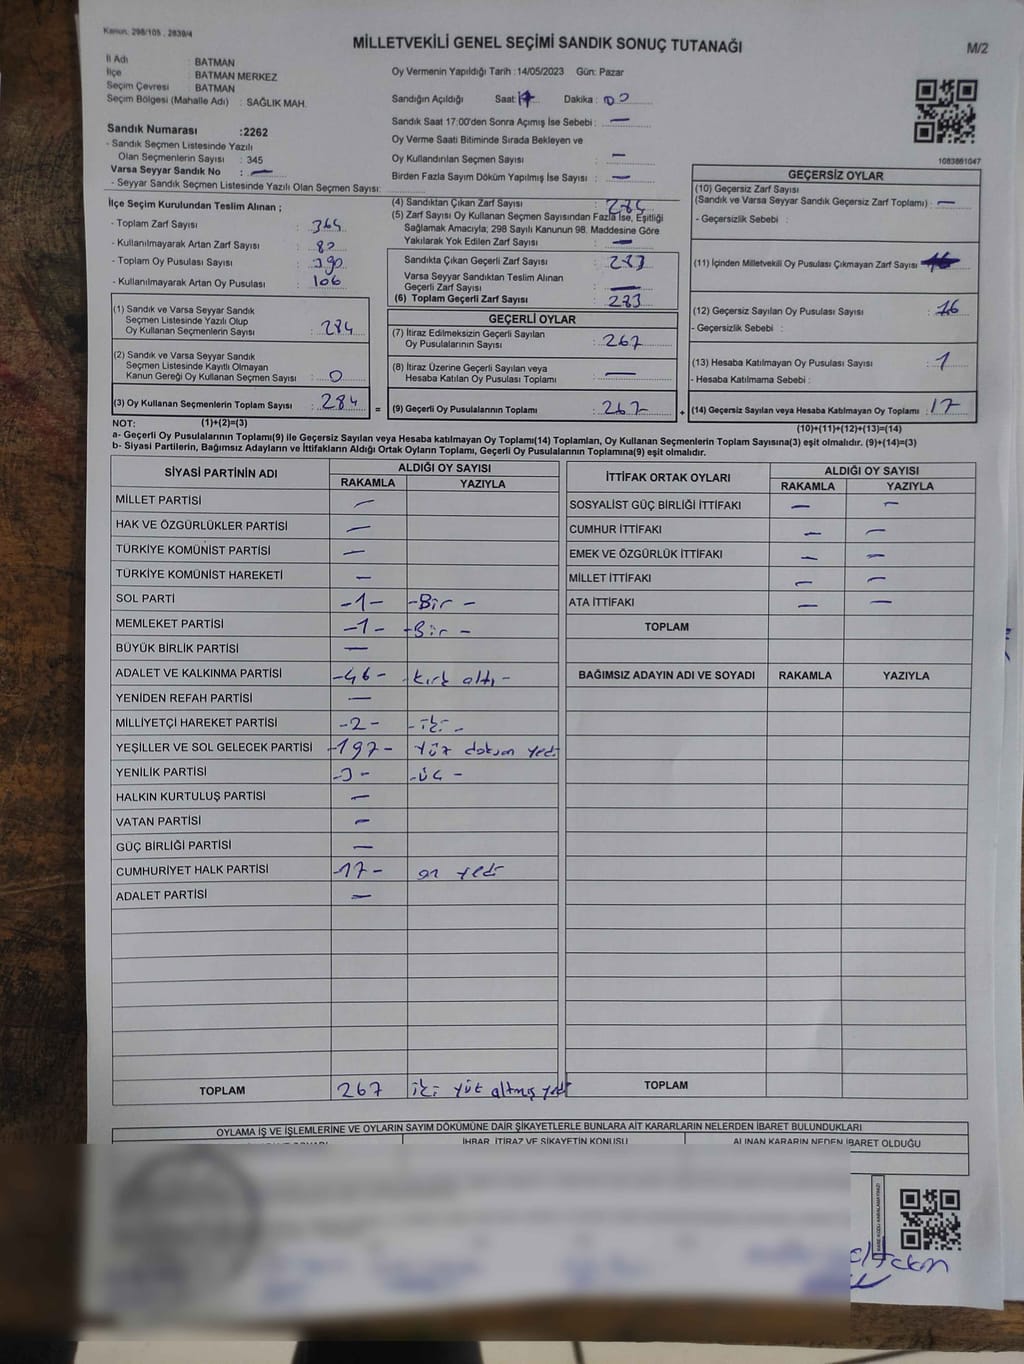 Kanun. 298/105 , 2839/4
MİLLETVEKİLİ GENEL SEÇİMİ SANDIK SONUÇ TUTANAĞI
M/2
İl Adı : BATMAN
İlçe : BATMAN MERKEZ
Seçim Çevresi : BATMAN
Seçim Bölgesi (Mahalle Adı) : SAĞLIK MAH.
Oy Vermenin Yapıldığı Tarih :14/05/2023 Gün: Pazar
Sandığın Açıldığı Saat: 17 Dakika : 00
Sandık Saat 17:00'den Sonra Açımış İse Sebebi : —
Oy Verme Saati Bitiminde Sırada Bekleyen ve
Oy Kullandırılan Seçmen Sayısı : —
Birden Fazla Sayım Döküm Yapılmış İse Sayısı : —
Sandık Numarası :2262
- Sandık Seçmen Listesinde Yazılı
Olan Seçmenlerin Sayısı : 345
Varsa Seyyar Sandık No : —
- Seyyar Sandık Seçmen Listesinde Yazılı Olan Seçmen Sayısı:
1083861047
İlçe Seçim Kurulundan Teslim Alınan ;
- Toplam Zarf Sayısı : 364
- Kullanılmayarak Artan Zarf Sayısı : 80
- Toplam Oy Pusulası Sayısı : 390
- Kullanılmayarak Artan Oy Pusulası : 106
(1) Sandık ve Varsa Seyyar Sandık
Seçmen Listesinde Yazılı Olup
Oy Kullanan Seçmenlerin Sayısı : 284
(2) Sandık ve Varsa Seyyar Sandık
Seçmen Listesinde Kayıtlı Olmayan
Kanun Gereği Oy Kullanan Seçmen Sayısı : 0
(3) Oy Kullanan Seçmenlerin Toplam Sayısı : 284 =
(4) Sandıktan Çıkan Zarf Sayısı : 284
(5) Zarf Sayısı Oy Kullanan Seçmen Sayısından Fazla İse, Eşitliği
Sağlamak Amacıyla; 298 Sayılı Kanunun 98. Maddesine Göre
Yakılarak Yok Edilen Zarf Sayısı : —
Sandıkta Çıkan Geçerli Zarf Sayısı : 283
Varsa Seyyar Sandıktan Teslim Alınan
Geçerli Zarf Sayısı : —
(6) Toplam Geçerli Zarf Sayısı : 283
GEÇERLİ OYLAR
(7) İtiraz Edilmeksizin Geçerli Sayılan
Oy Pusulalarının Sayısı : 267
(8) İtiraz Üzerine Geçerli Sayılan veya
Hesaba Katılan Oy Pusulası Toplamı : —
(9) Geçerli Oy Pusulalarının Toplamı : 267 +
GEÇERSİZ OYLAR
(10) Geçersiz Zarf Sayısı
(Sandık ve Varsa Seyyar Sandık Geçersiz Zarf Toplamı) : —
- Geçersizlik Sebebi :
(11) İçinden Milletvekili Oy Pusulası Çıkmayan Zarf Sayısı
(12) Geçersiz Sayılan Oy Pusulası Sayısı : 16
- Geçersizlik Sebebi :
(13) Hesaba Katılmayan Oy Pusulası Sayısı : 1
- Hesaba Katılmama Sebebi :
(14) Geçersiz Sayılan veya Hesaba Katılmayan Oy Toplamı : 17
NOT: (1)+(2)=(3)
(10)+(11)+(12)+(13)=(14)
a- Geçerli Oy Pusulalarının Toplamı(9) ile Geçersiz Sayılan veya Hesaba katılmayan Oy Toplamı(14) Toplamları, Oy Kullanan Seçmenlerin Toplam Sayısına(3) eşit olmalıdır. (9)+(14)=(3)
b- Siyasi Partilerin, Bağımsız Adayların ve İttifakların Aldığı Ortak Oyların Toplamı, Geçerli Oy Pusulalarının Toplamına(9) eşit olmalıdır.
SİYASİ PARTİNİN ADI ALDIĞI OY SAYISI
RAKAMLA YAZIYLA
MİLLET PARTİSİ —
HAK VE ÖZGÜRLÜKLER PARTİSİ —
TÜRKİYE KOMÜNİST PARTİSİ —
TÜRKİYE KOMÜNİST HAREKETİ —
SOL PARTİ -1- -Bir -
MEMLEKET PARTİSİ -1- -Bir -
BÜYÜK BİRLİK PARTİSİ —
ADALET VE KALKINMA PARTİSİ -46- -kırk altı-
YENİDEN REFAH PARTİSİ —
MİLLİYETÇİ HAREKET PARTİSİ -2- -iki-
YEŞİLLER VE SOL GELECEK PARTİSİ -197- yüz doksan yedi
YENİLİK PARTİSİ -3- -üç -
HALKIN KURTULUŞ PARTİSİ —
VATAN PARTİSİ —
GÜÇ BİRLİĞİ PARTİSİ —
CUMHURİYET HALK PARTİSİ -17- on yedi
ADALET PARTİSİ —
TOPLAM 267 iki yüz altmış yedi
İTTİFAK ORTAK OYLARI ALDIĞI OY SAYISI
RAKAMLA YAZIYLA
SOSYALİST GÜÇ BİRLİĞİ İTTİFAKI — —
CUMHUR İTTİFAKI — —
EMEK VE ÖZGÜRLÜK İTTİFAKI — —
MİLLET İTTİFAKI — —
ATA İTTİFAKI — —
TOPLAM
BAĞIMSIZ ADAYIN ADI VE SOYADI RAKAMLA YAZIYLA
TOPLAM
OYLAMA İŞ VE İŞLEMLERİNE VE OYLARIN SAYIM DÖKÜMÜNE DAİR ŞİKAYETLERLE BUNLARA AİT KARARLARIN NELERDEN İBARET BULUNDUKLARI
İHBAR, İTİRAZ VE ŞİKAYETİN KONUSU ALINAN KARARIN NEDEN İBARET OLDUĞU